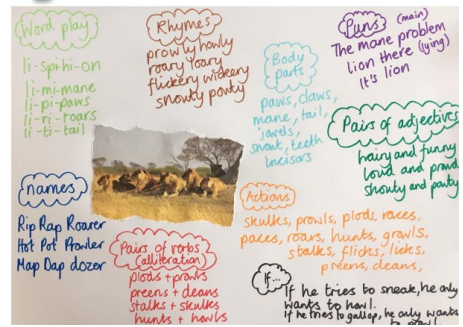 Word play
li-spi hi-on
li-mi-mane
li-pi-paws
li-ri-roars
li-ti-tail
Rhymes
prowly howly
roary loary
flickery wickery
snouty pouty
Puns (main)
The mane problem
lion there (lying)
It's lion
Body parts
paws, claws,
mane, tail,
jowels,
snout, teeth
incisors
Pairs of adjectives
hairy and funny
loud and proud
shouty and pouty
names
Rip Rap Roarer
Hot Pot Prowler
Map Dap dozer
Pairs of verbs
(alliteration)
plods + prowls
preens + cleans
stalks + skulks
hunts + howls
Actions
skulks, prowls, plods, races,
paces, roars, hunts, growls,
stalks, flicks, licks,
preens, cleans,
If...
If he tries to sneak, he only
wants to howl.
If he tries to gallop, he only wants
prowl